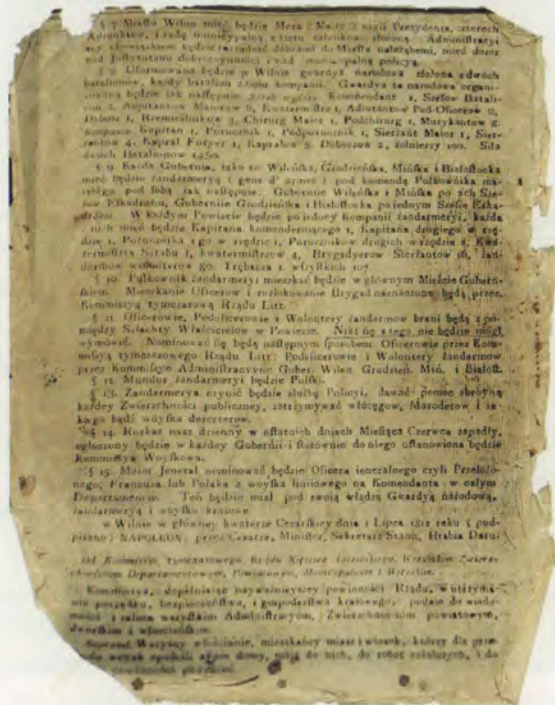 § 7 Miasto Wilno mieć będzie Mera (Maire) czyli Prezydenta, czterech
Adjunktów, i radę municypalną z członków złożoną. Administracyi
tey obowiązkiem będzie zarządzać dobrami do Miasta należącemi, mieć dozor
nad Instytutami dobroczynności i nad municypalną policyą.
§ 8 Uformowana będzie w Wilnie gwardya narodowa złożona z dwóch
batalionow, każdy batalion z kompanii. Gwardya ta narodowa organizowaną
będzie jak następuie: Komendant 1, Szefow Batalionu
2, Adjutantow Maiorow 2, Kwatermistrz 1, Adiutantow Pod-Oficerow 2,
Dobosz 1, Rzemieślnikow 3, Chirurg Maior 1, Podchirurg 1, Muzykantow 8.
Kompania Kapitan 1, Porucznik 1, Podporucznik 1, Sierżant Maior 1, Sierżantow
4, Kapral Furyer 1, Kapralow 8, Doboszow 2, żołnierzy 100. Siła
dwóch Batalionow 1450.
§ 9 Każda Gubernia, jako to: Wileńska, Grodzieńska, Mińska i Białostocka
mieć będzie żandarmeryą (gens d' armes) pod komendą Pułkownika
pod sobą jak następuie: Gubernie Wileńska i Mińska po 2ch Szefow
Eskadronu, Gubernie Grodzieńska i Białostocka po iednym Szefie Eskadronu.
W każdym Powiecie będzie po iedney Kompanii żandarmeryi, każda
z nich mieć będzie Kapitana komenderuiącego 1, Kapitana drugiego w rzędzie
1, Porucznika 1go w rzędzie 1, Porucznikow drugich w rzędzie 2, Kwatermistrza
Sztabu 1, kwatermistrzow 4, Brygadyerow Sierżantow 16, żandarmow
80. Trębacza 1. wszystkich 107.
§ 10. Pułkownik żandarmeryi mieszkać będzie w głównym Mieście Guberńskiem.
Mieszkanie Oficerow i rozlokowanie Brygad naznaczone będą przez
Kommissyą tymczasową Rządu Litt:
§ 11. Oficerowie, Podoficerowie i Wolontery żandarmow brani będą z pomiędzy
Szlachty Właścicielow w Powiecie. Nikt się z tego nie będzie mógł
wymówić. Nominować się będą następnym sposobem: Oficerowie przez Kommissyą
tymczasowego Rządu Litt: Podoficerowie i Wolontery żandarmow
przez Kommissye Administracyyne Guber. Wilen. Grodzień. Miń. i Białost.
§ 12. Mundur żandarmeryi będzie Polski.
§ 13. Żandarmerya czynić będzie służbę Policyi, dawać pomoc zbroyną
każdey Zwierzchności publiczney, zatrzymywać włóczęgow, Maroderow i jakiego
bądź woyska dezerterow.
§ 14. Rozkaz nasz dzienny w ostatnich dniach Miesiąca Czerwca zapadły,
ogłoszony będzie w każdey Gubernii i stosownie do niego ustanowiona będzie
Kommissya Woyskowa.
§ 15. Maior Jenerał nominować będzie Oficera jeneralnego czyli Przełożonego,
Francuza lub Polaka z woyska liniiowego na Komendanta w całym
Departamencie. Ten będzie miał pod swoią władzą Gwardyą narodową,
żandarmeryą i woysko kraiowe.
w Wilnie w główney kwaterze Cesarskiey dnia 1 Lipca 1812 roku (podpisano)
NAPOLEON, przez Cesarza, Minister, Sekretarz Stanu, Hrabia Daru.
Od Kommissyi tymczasowego Rządu Xięstwa Litewskiego, Wszystkim Zwierzchnościom
Departamentowym, Powiatowym, Municypalnym i Wieyskim.
Kommissya, dopełniając nayważnieyszey powinności Rządu, w utrzymaniu
porządku, bezpieczeństwa, i gospodarstwa kraiowego, podaie do wiadomości
i zaleca wszystkim Administracyom, Zwierzchnościom powiatowym,
dworskim i włościańskim.
Naprzod Wszyscy włościanie, mieszkańcy miast i wiosek, którzy dla przechodu
woysk opuścili swoie domy, do nich, do robot rolniczych, i do
powinności